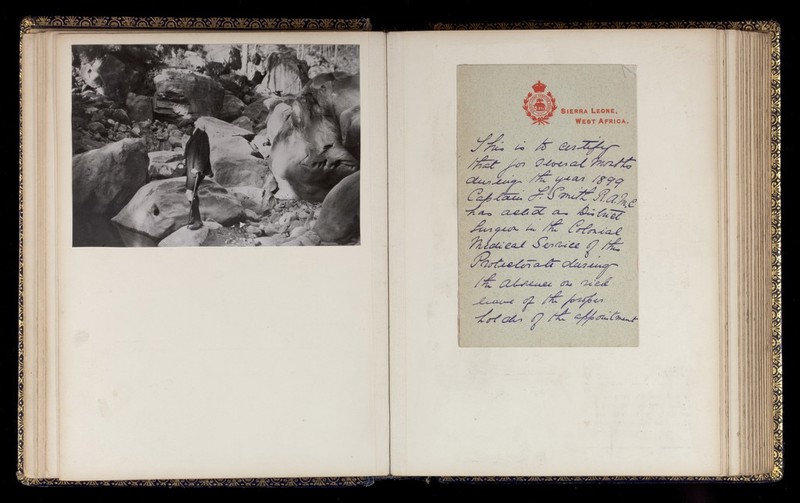 SIERRA LEONE,
WEST AFRICA.
This is to certify
that for several months
during the year 1899
Captain F. Smith R.A.M.C
has acted as District
Surgeon in the Colonial
Medical Service of the
Protectorate during
the absence on sick
leave of the proper
holder of the appointment